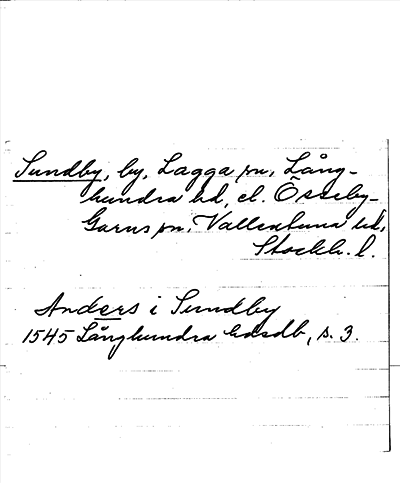 Sundby, by, Lagga sn, Lång-
hundra hd, el. Össeby-
Garns sn, Vallentuna hd,
Stockh. l.
Anders i Sundby
1545 Långhundra hdsdb, s. 3.